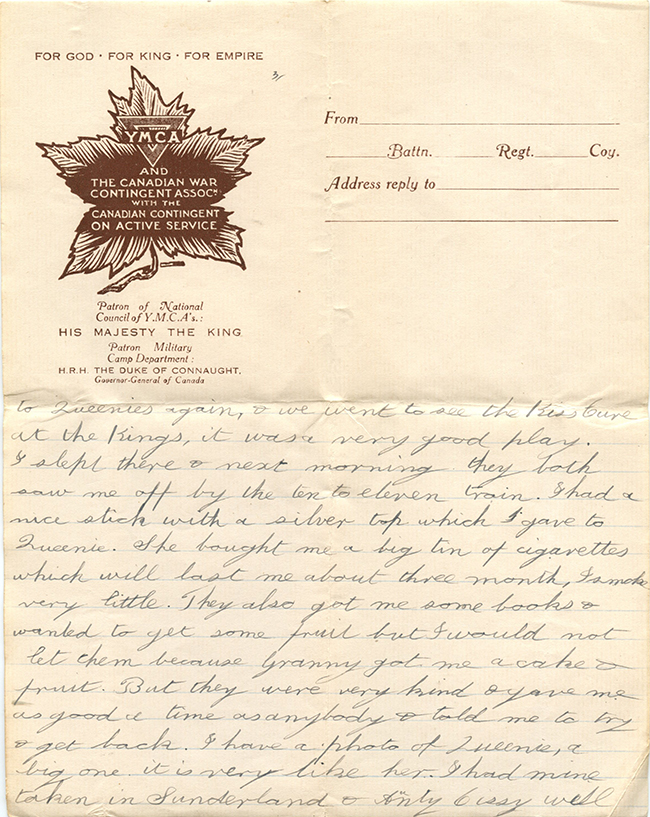 FOR GOD · FOR KING · FOR EMPIRE
3/
YMCA
AND
THE CANADIAN WAR
CONTINGENT ASSOCN
WITH THE
CANADIAN CONTINGENT
ON ACTIVE SERVICE
Patron of National
Council of Y.M.C.A's.:
HIS MAJESTY THE KING
Patron Military
Camp Department:
H.R.H. THE DUKE OF CONNAUGHT,
Governor-General of Canada
From
Battn. Regt. Coy.
Address reply to
to Queenies again, & we went to see the Kiss Cure
at the Kings, it was a very good play.
I slept there & next morning they both
saw me off by the ten to eleven train. I had a
nice stick with a silver top which I gave to
Queenie. She bought me a big tin of cigarettes
which will last me about three month, I smoke
very little. They also got me some books &
wanted to get some fruit but I would not
let them because Granny got me a cake &
fruit. But they were very kind & gave me
as good a time as anybody & told me to try
& get back. I have a photo of Queenie, a
big one. it is very like her. I had mine
taken in Sunderland & Anty Cissy will